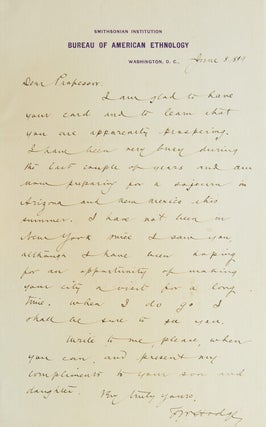 SMITHSONIAN INSTITUTION
BUREAU OF AMERICAN ETHNOLOGY
WASHINGTON, D. C., June 8.
Dear Professor:
I am glad to have
your card and to learn that
you are apparently prospering.
I have been very busy during
the last couple of years and am
now preparing for a sojourn in
Arizona and New Mexico this
summer. I have not been in
New York since I saw you,
although I have been hoping
for an opportunity of making
your city a visit for a long
time. When I do go I
shall be sure to see you.
Write to me, please, when
you can, and present my
compliments to your son and
daughter. Very truly yours,
FW Hodge